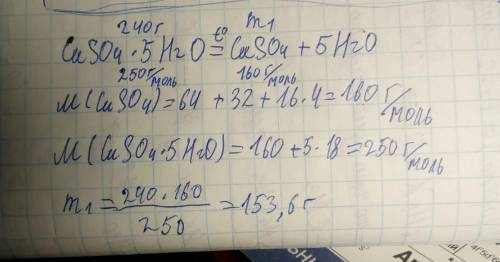 240г m1
t°
CuSO4·5H2O=CuSO4+5H2O
250г/моль 160г/моль
M(CuSO4)=64+32+16·4=160г/моль
M(CuSO4·5H2O)=160+5·18=250г/моль
m1=240·160/250=153,6г